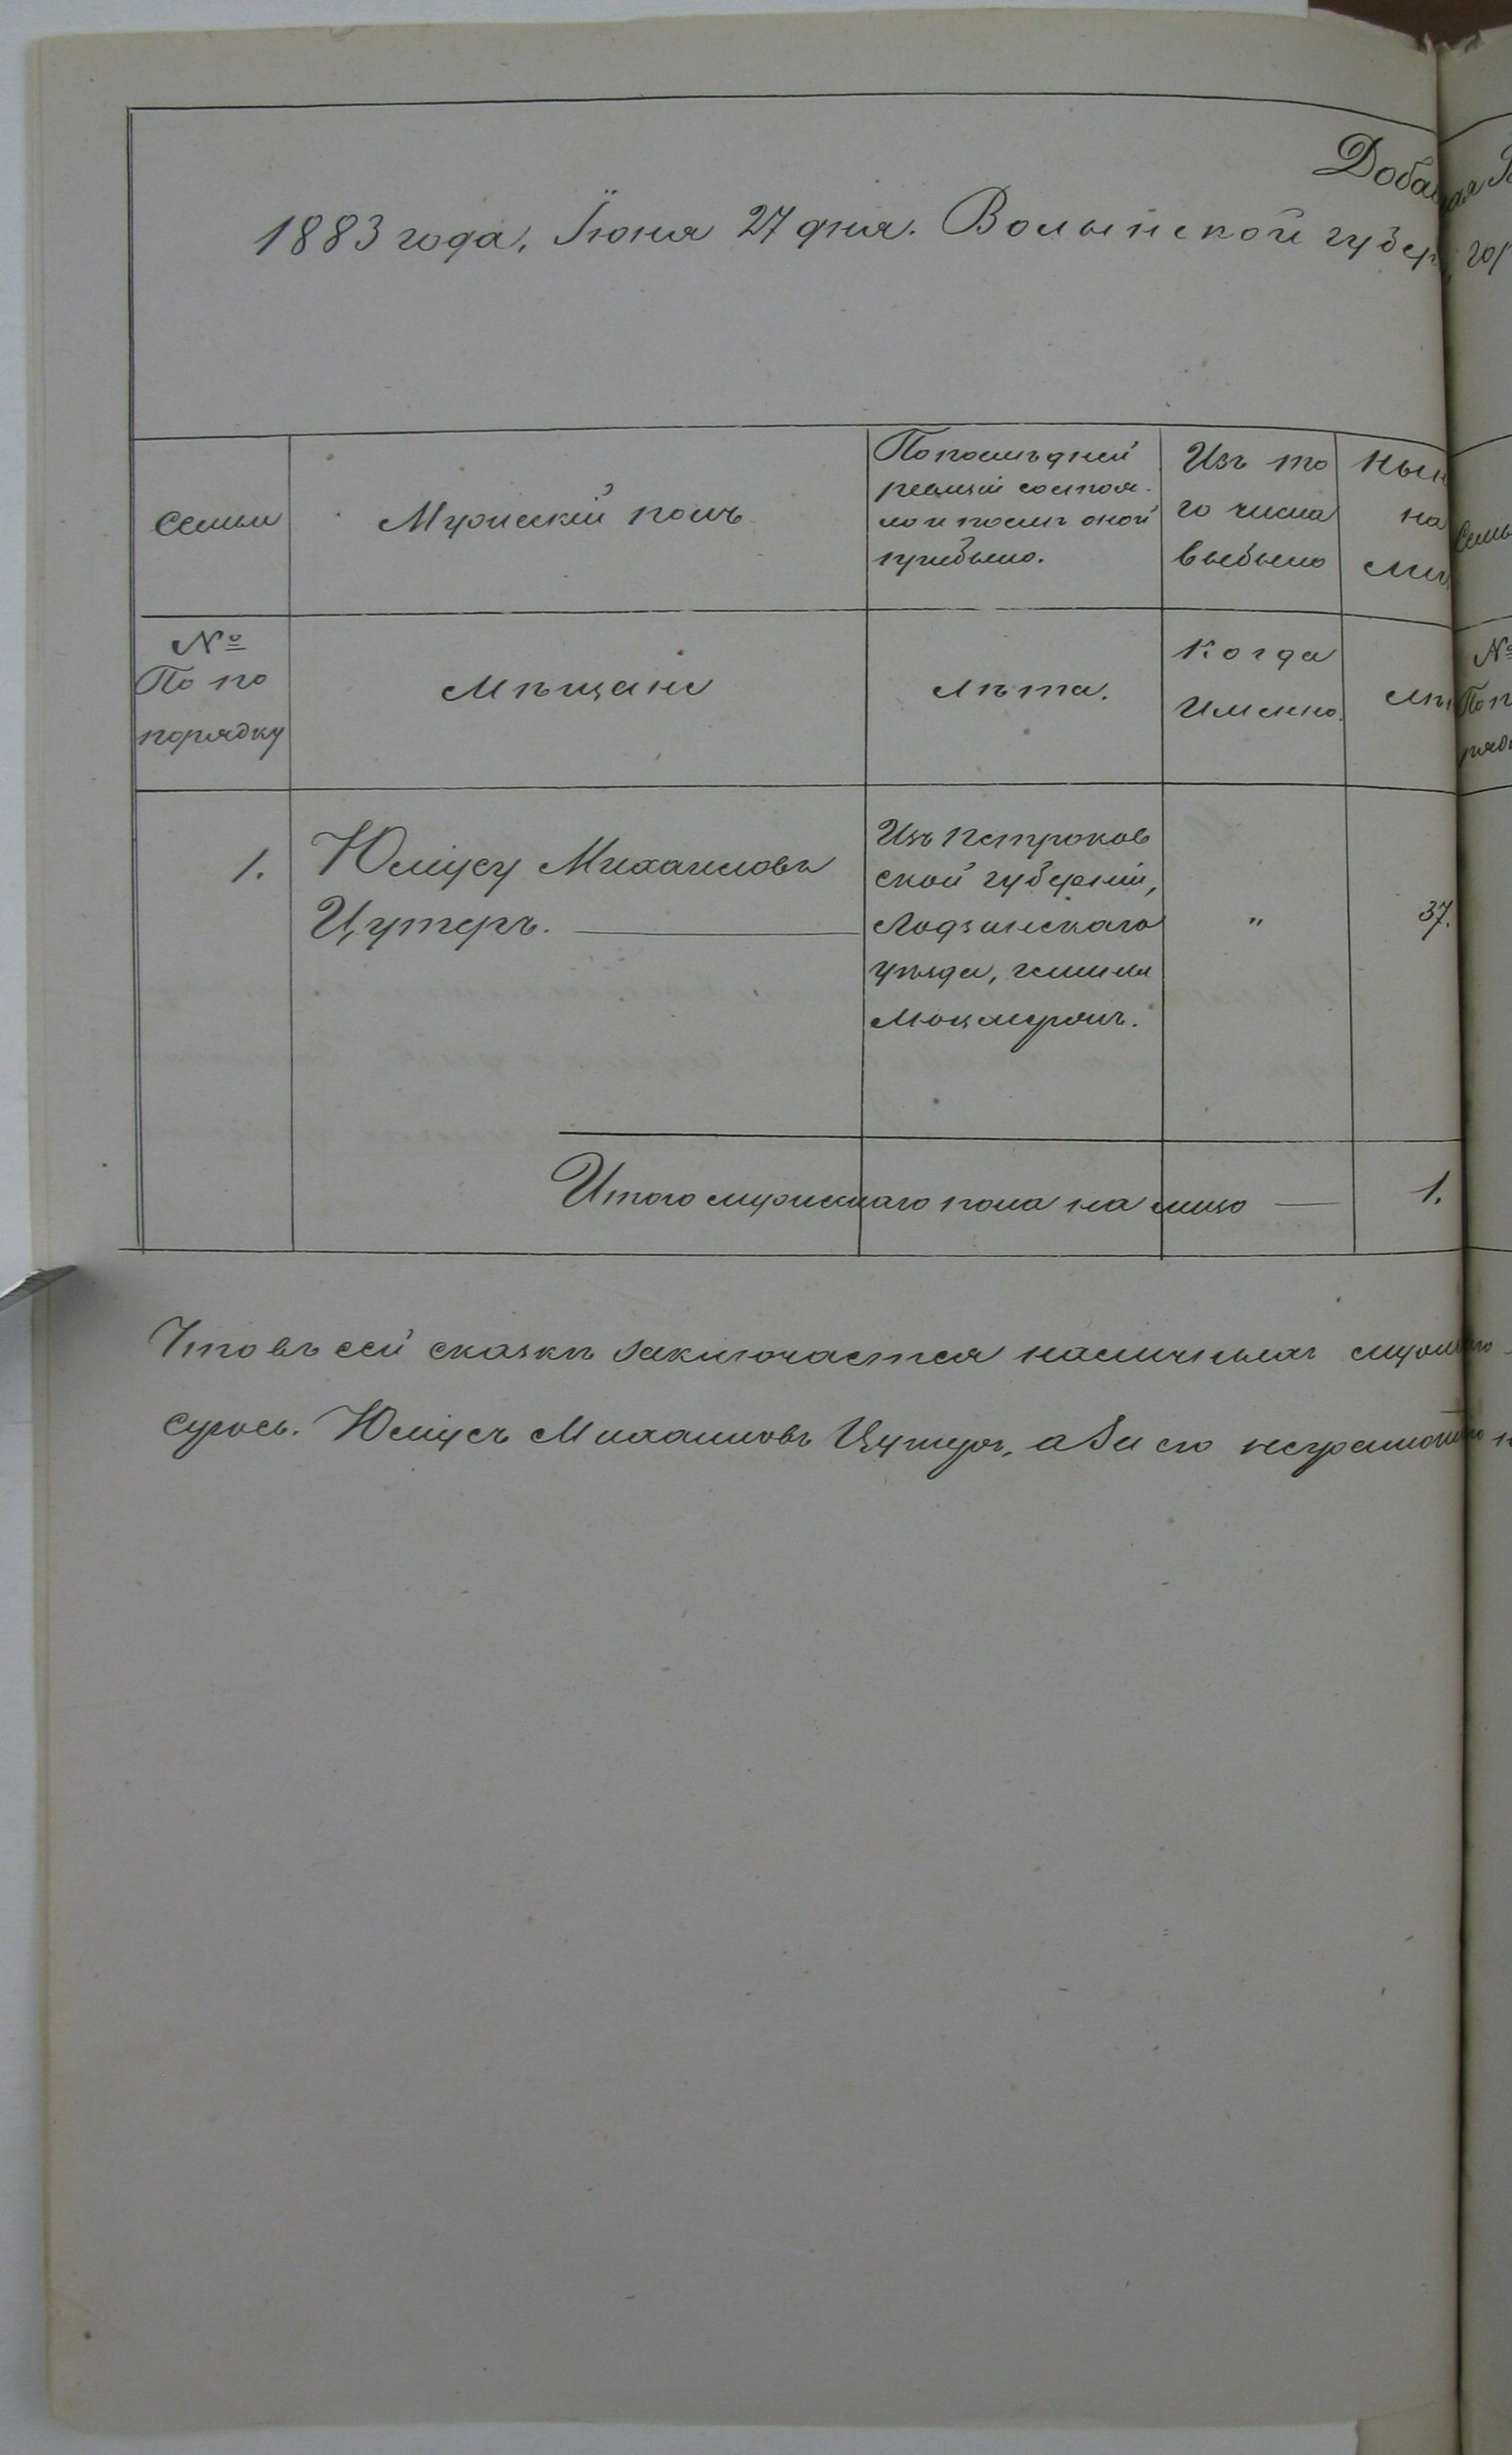 Доба
1883 года, Іюня 27 дня. Волынской губер
Семьи
Мужескій полъ
По послѣдней
ревизіи состоя-
ло и послѣ оной
прибыло.
Изъ то
го числа
выбыло
Нын
на
ли
№
По по
порядку
Мѣщане
Лѣта.
Когда
Именно.
Лѣ
1.
Юліусу Михаиловъ
Цутеръ.
Изъ Петроков
ской губерніи,
Лодзинскаго
уѣзда, гмины
"
37.
Итого мужескаго пола на лицо — 1.
Что въ сей сказкѣ заключается наличныхъ
Юліусъ Михаиловъ Цутеръ, а за его неграмот
Семь
№
По п